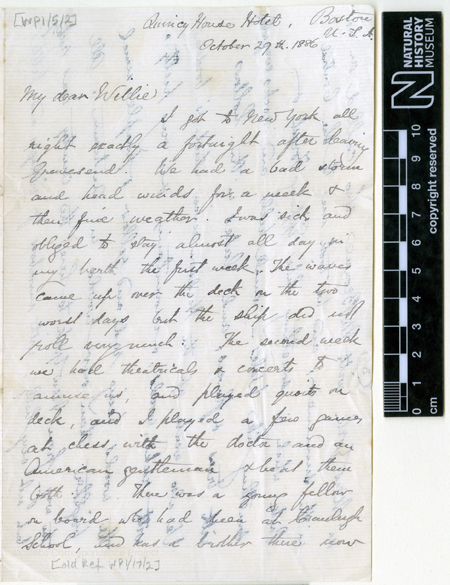 [WP1/5/2]
Quincy House Hotel, Boston
U. S. A.
October 29th. 1886
My dear Willie
I got to New York all
right exactly a fortnight after leaving
Gravesend. We had a bad storm
and head winds for a week &
then fine weather. I was sick and
obliged to stay almost all day in
my berth the first week. The waves
came up over the deck on the two
worst days but the ship did not
roll very much. The second week
we had theatricals & concerts to
amuse us, and played quoits on
deck, and I played a few games
at chess with the doctor and an
American gentleman & beat them
both. There was a young fellow
on board who had been at Cranleigh
School, and has a brother there now
[Old Ref WP1/17/2]
NATURAL
HISTORY
MUSEUM
copyright reserved
0 1 2 3 4 5 6 7 8 9 10
cm